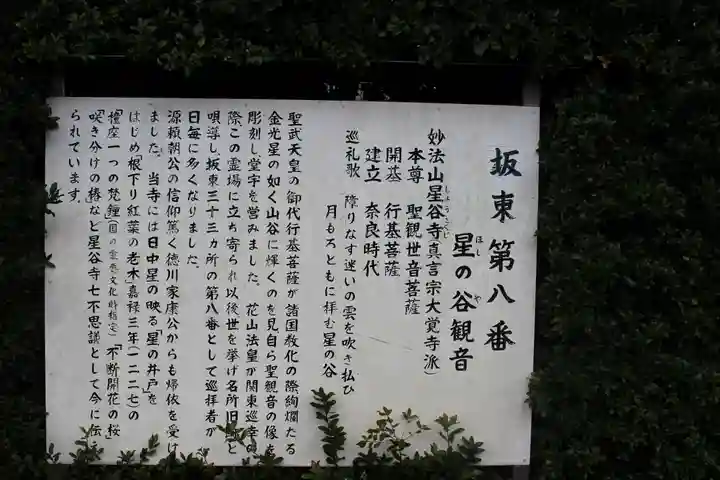 坂東第八番
ほし や
星の谷観音
しょうこくじ
妙法山星谷寺(真言宗大覚寺派)
本尊 聖観世音菩薩
開基 行基菩薩
建立 奈良時代
巡礼歌 障りなす迷いの雲を吹き払ひ
月もろともに拝む星の谷
聖武天皇の御代行基菩薩が諸国教化の際絢爛たる
金光星の如く山谷に輝くのを見自ら聖観音の像を
彫刻し堂宇を営みました。花山法皇が関東巡幸の
際この霊場に立ち寄られ以後世を挙げ名所旧跡と
唄導し、坂東三十三ヵ所の第八番として巡拝者が
日毎に多くなりました。
源頼朝公の信仰篤く徳川家康公からも帰依を受け
ました。当寺には日中星の映る「星の井戸」を
はじめ「根下り紅葉の老木」嘉禄三年(一二二七)の
「撞座一つの梵鐘」(国の重要文化財指定)「不断開花の桜」
「咲き分けの椿」など星谷寺七不思議として今に伝え
られています。